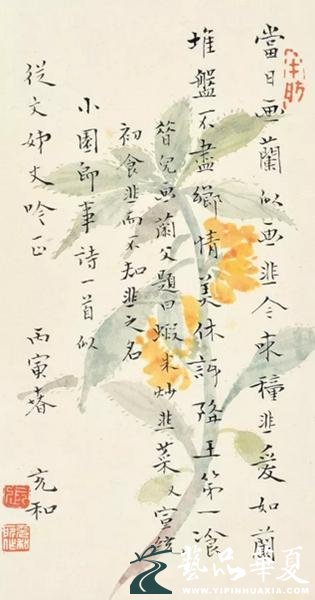 當日画蘭似画韭今來種韭愛如蘭
堆盤不盡鄉情美休訝降王第一飡
兒画蘭父題曰蝦米炒韭菜又宣統
初食韭而不知韭之名
小園即事詩一首似
從文姊丈吟正
丙寅春 充和
張
藝品華夏
WWW.YIPINHUAXIA.COM